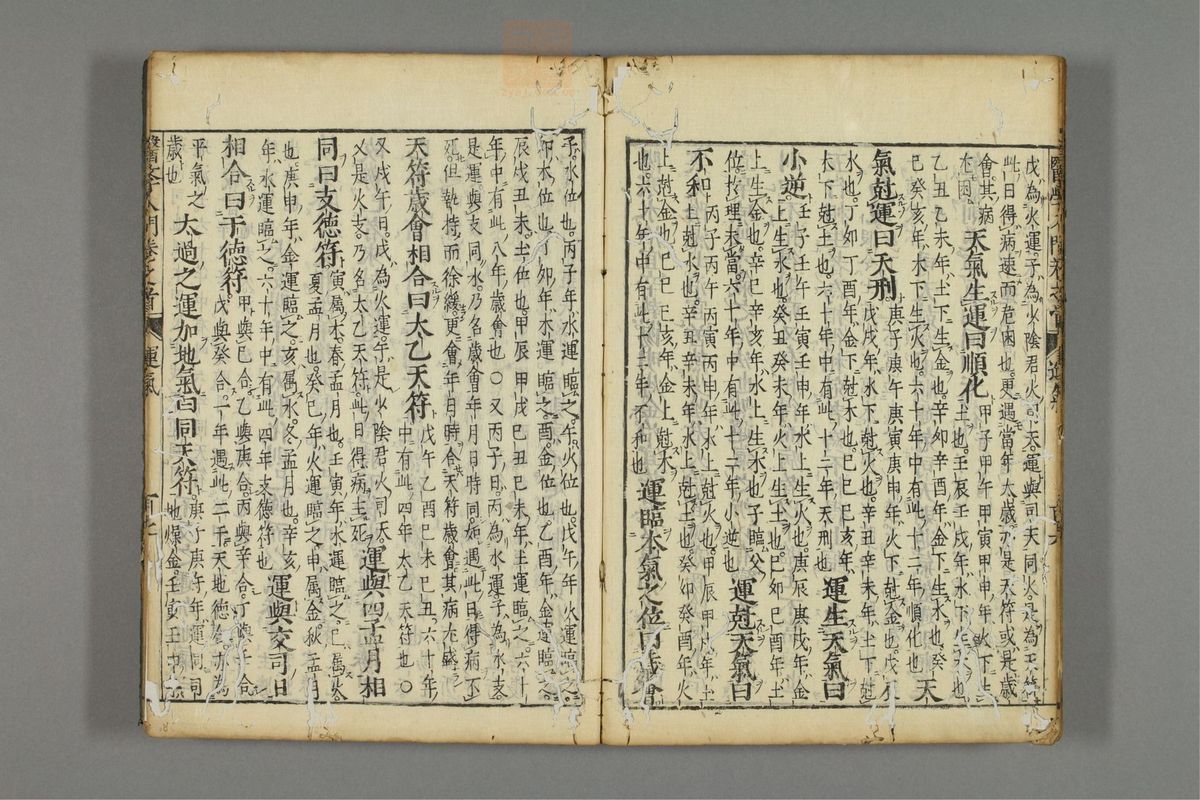 戊為火運子為少陰君火司天運與司天同火是為天符
此日得病速而危困也更遇當年太歲亦是天符或是歲
會其病
在困天氣生運曰順化甲子甲午甲寅甲申年火下生
土也壬辰壬戌年水下生木也
乙丑乙未年土下生金也辛卯辛酉年金下生水也癸
巳癸亥年木下生火也六十年中有此十二年順化也天
氣尅運曰天刑庚子庚午庚寅庚申年火下尅金也戊
辰戊戌年水下尅火也辛丑辛未年土下尅
水也丁卯丁酉年金下尅木也己巳己亥年
木下尅土也六十年中有此十二年天刑也運生天氣曰
小逆壬子壬午壬寅壬申年木上生火也庚辰庚戌年金
上生水也癸丑癸未年火上生土也己卯己酉年土
上生金也辛巳辛亥年水上生木也子臨父
位於理未當六十年中有此十二年小逆也運尅天氣曰
不和丙子丙午丙寅丙申年水上尅火也甲辰甲戌年土
上尅水也乙丑乙未年金上尅木也癸卯癸酉年火
上尅金也
也六十年中有此十二年不和也運臨本氣之位曰歲會
子水位也丙子年水運臨之午火位也戊午年火運臨之
卯木位也丁卯年木運臨之酉金位也乙酉年金運臨之
辰戌丑未土位也甲辰甲戌己丑己未年土運臨之六十
年中有此八年歲會也○又丙子日丙為水運子為水支
是運與支同水乃名歲會年月日時同如遇此日得病不
死但執持而徐緩更會年月時合天符歲會其病在盛
天符歲會相合曰太乙天符戊午乙酉己未己丑六十年
中有此四年太乙天符也○
又戊午日戊為火運午是少陰君火司天
又是火支乃名太乙天符此日得病主死運與四孟月相
同曰支德符寅屬木春孟月也壬寅年木運臨之巳屬火
夏孟月也癸巳年火運臨之申屬金秋孟月
也庚申年金運臨之亥屬水冬孟月也辛亥
年水運臨之六十年中有此四年支德符也運與交司日
相合曰干德符甲與己合乙與庚合丙與辛合丁與壬合
戊與癸合一年遇此二干天地德合亦為
平氣之
歲也太過之運加地氣曰同天符庚子庚午年運同司
地燥金壬寅壬申年